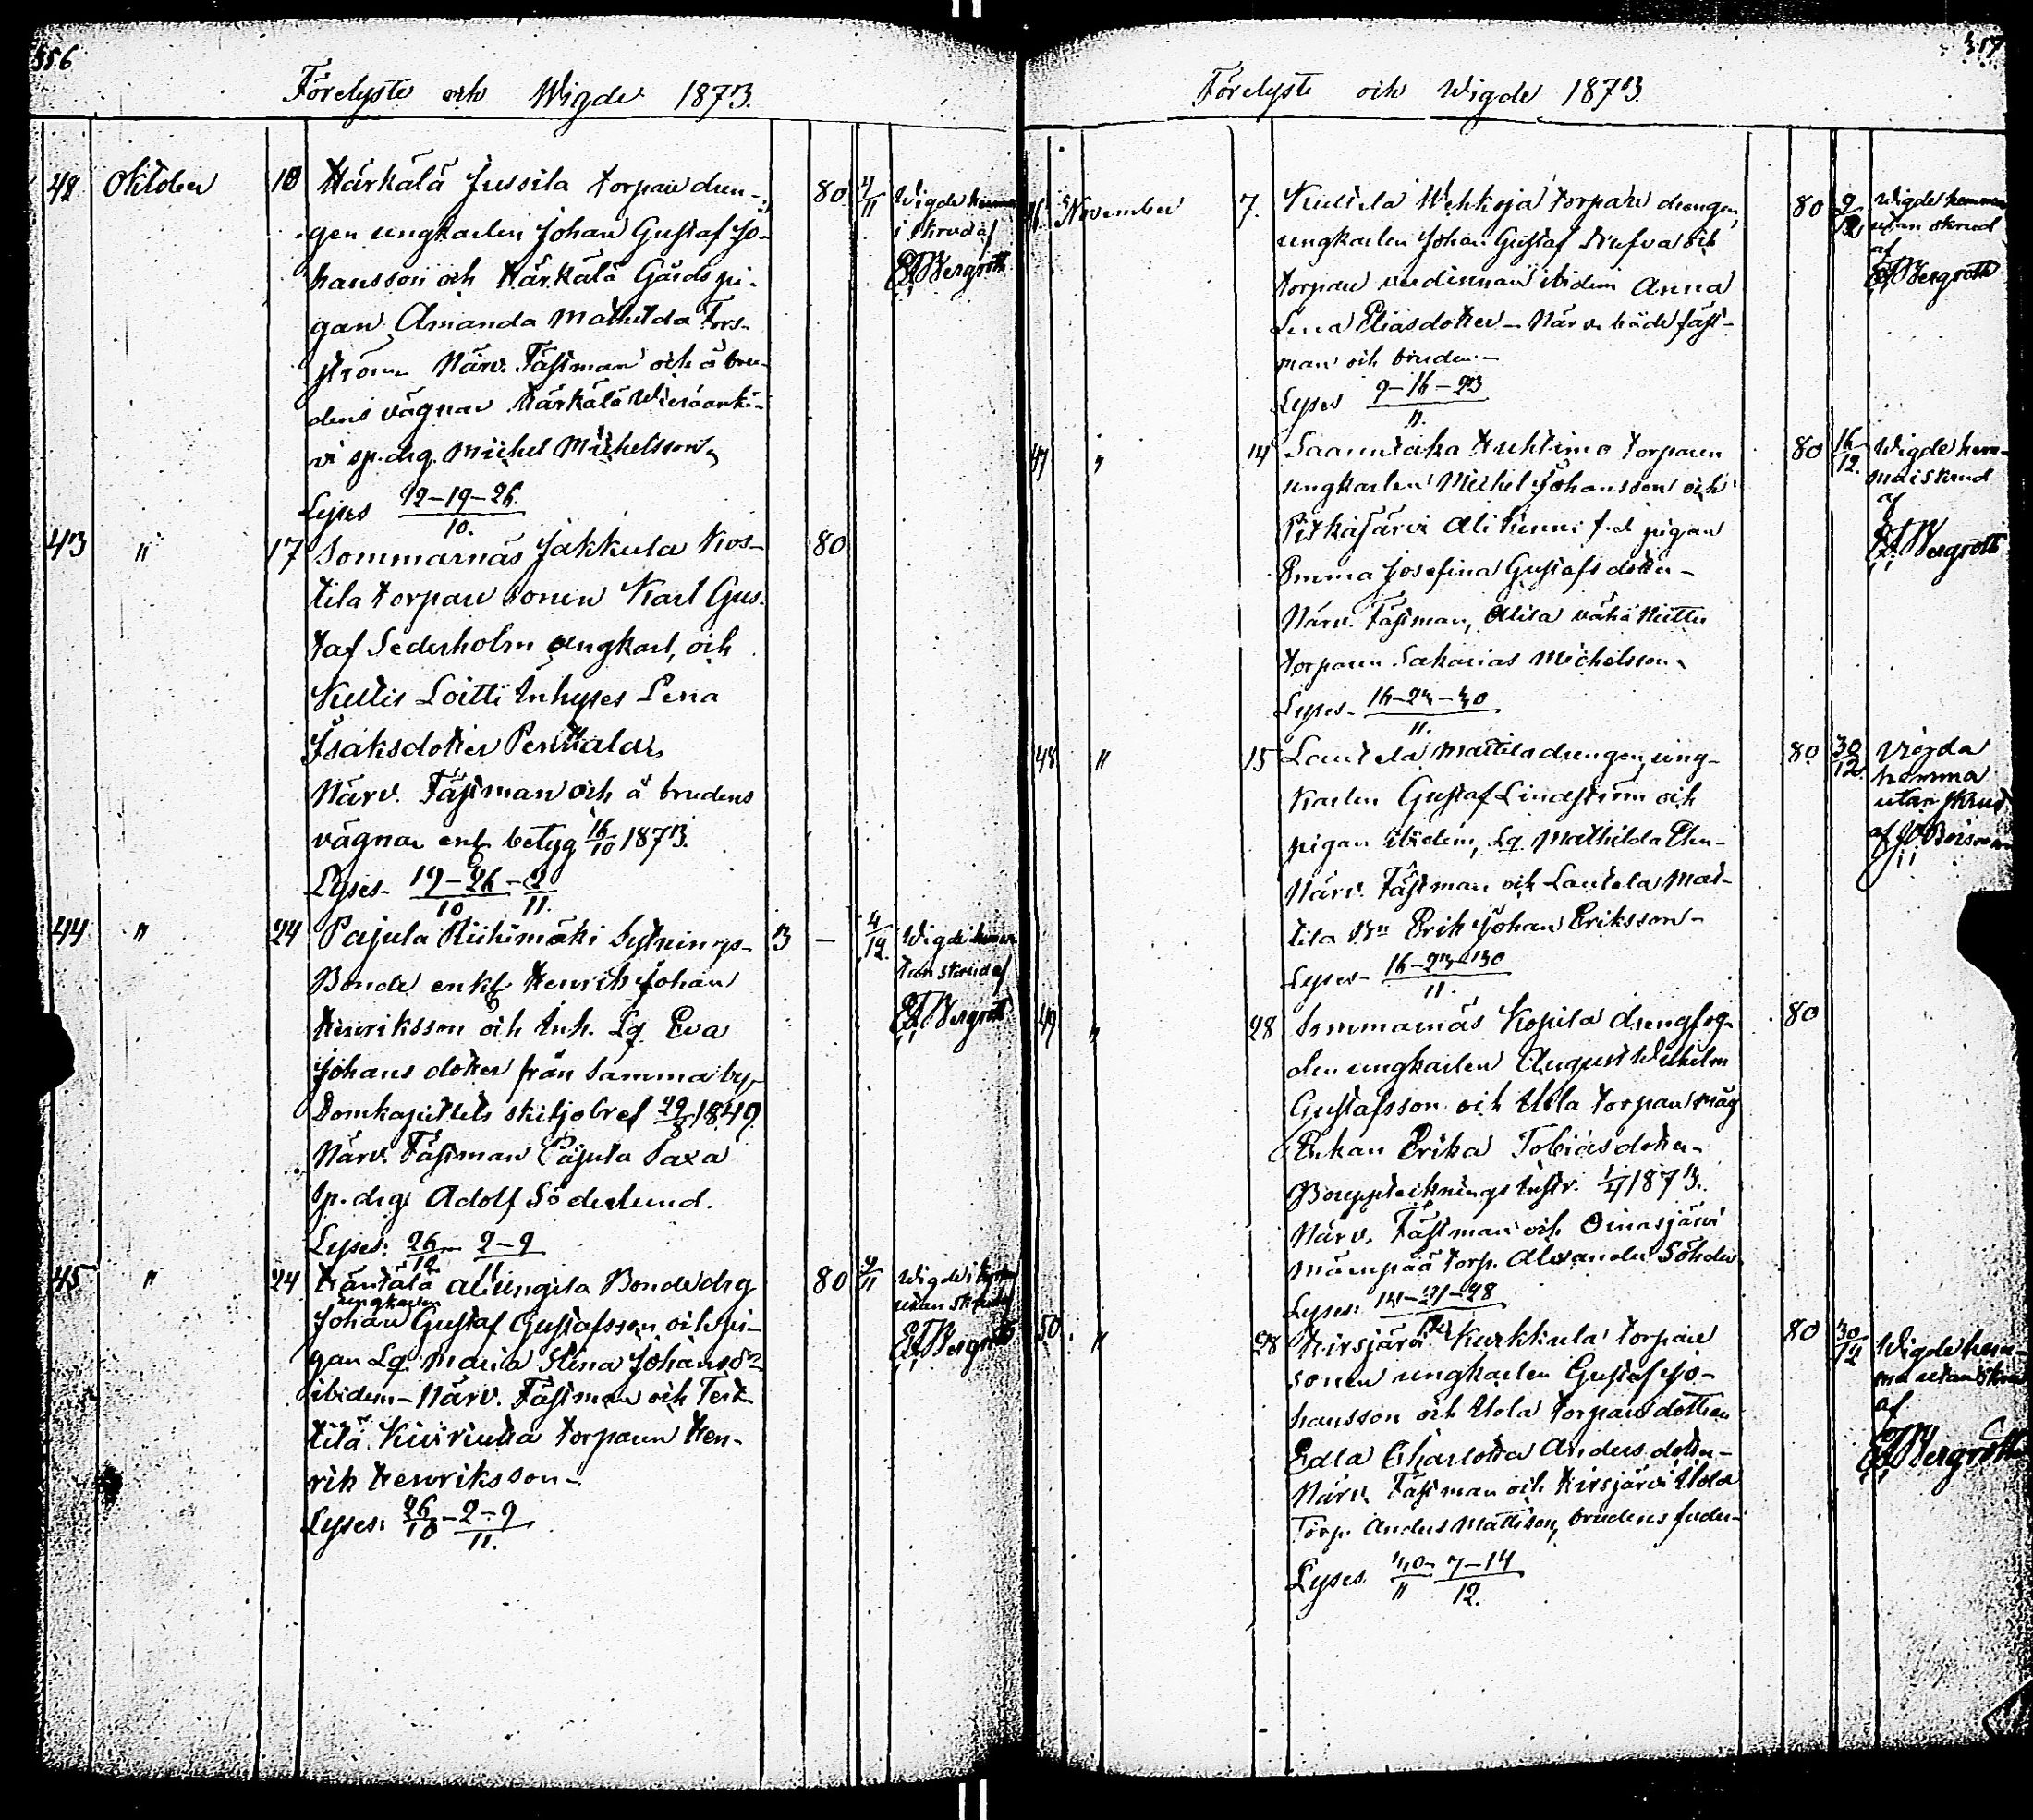 356
Förelyste och Wigde 1873.
42 Oktober 10 Härkälä Jussila torpare dren-
gen ungkarlen Johan Gustaf Jo-
hansson och Härkälä Gårds pi-
gan Amanda Mathilda Fors-
ström Närv. Fästman och å bru-
dens vägnar Härkälä
vi sp. drg. Michel Michelsson
Lyses 12-19-26
10.
80 11 Wigde hemma
i skrud af
Bergroth
43 " 17 Sommarnäs Jakkula Kos-
tila torpare sonen Karl Gus-
taf Sederholm ungkarl, och
Kullis Loitti Inhyses Lena
Isaksdotter
Närv. Fästman och å brudens
vägnar enl. betyg 16/10 1873.
Lyses 19-26 - 2
10 11.
80
44 " 24 Pajula Riihimäki Sytnings-
Bonde enkl. Henrik Johan
Henriksson och Inh. Lq. Eva
Johans dotter från samma by,
Domkapitlets skiljobref 1849.
Närv. Fästman Pajula Saxa
Sp. drg. Adolf Söderlund.
Lyses: 26 - 2-9
10 11
3 — 4/12. Wigde hemma
utan skrud af
Bergroth
45 " 24 Häntälä Bonde drg
ungkarlen
Johan Gustaf Gustafsson och pi-
gan Lq. Maria Stina Johans dr
ibidem - Närv. Fästman och Tert-
tilä torparen Hen-
rik Henriksson -
Lyses: 26 - 2-9
10 11.
80 9/11 Wigde i
utan skrud af
Bergroth
357
Förelyste och Wigde 1873.
46. November 7. torpare drengen,
ungkarlen Johan Gustaf och
torpare ibidem Anna
Lena Eliasdotter - Närv. både fäst-
man och bruden -
Lyses 9-16-23
11.
80 9/12 Wigde hemma
utan skrud
af
Bergroth
47 " 14 Saarentaka Huhtimo torparen
ungkarlen Michel Johansson och
Pitkäjärvi f.d. pigan
Emma Josefina Gustafs dotter -
Närv. Fästman,
torparen Sakarias Michelsson
Lyses - 16-23-30
11.
80 16/12. Wigde hem-
ma i skrud
af
Bergroth
48 " 15 Lautela Mattila drengen, ung-
karlen Gustaf Lindström och
pigan ibidem, Lq. Mathilda
Närv. Fästman och Lautela Mat-
tila Bn Erik Johan Eriksson -
Lyses - 16-23-30
11.
80 30/12. Vigda
hemma
utan skrud
af
49 " 28 Sommarnäs Kopila drengfog-
den ungkarlen August Wilhelm
Gustafsson och Uola torpare måg
Enkan Erika Tobiasdotter -
Bouppteknings Instr. 1873.
Närv. Fästman och Oinasjärvi
torp. Alexander
Lyses: 14-21-28
80
50. " 28 Hirsjärvi Kurkkula torpare
sonen ungkarlen Gustaf Jo-
hansson och Uola torpare dottren
Edla Charlotta Anders dotter -
Närv. Fästman och Hirsjärvi Uola
Torp. Anders Mattsson, brudens fader -
Lyses 30 - 7-14
11 12.
80 30/12 Wigde hem-
ma utan skrud
af
Bergroth